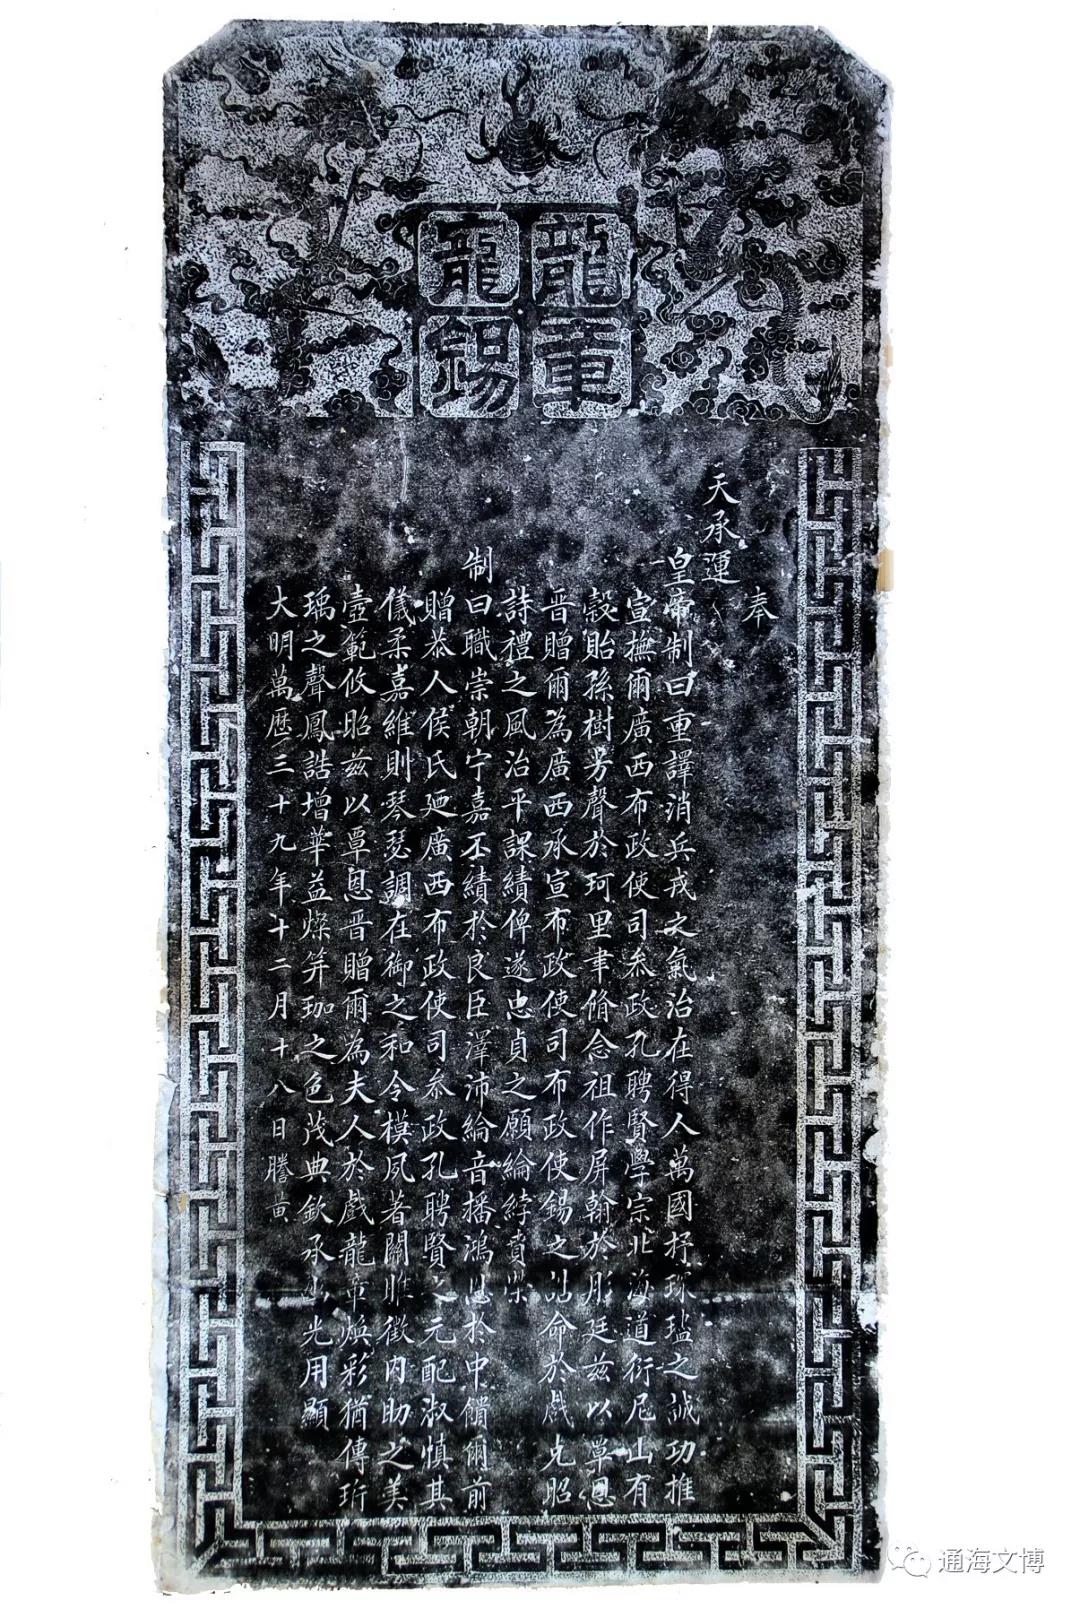 龍章
寵錫
奉
天承運
皇帝制曰重譯消兵戎之氣治在得人萬國抒琛璡之誠功推
宣撫爾廣西布政使司叅政孔聘賢學宗北海道衍尼山有
穀貽孫樹芳聲於珂里聿脩念祖作屏翰於彤廷兹以覃恩
晋贈爾為廣西承宣布政使司布政使錫之誥命於戲允昭
詩禮之風治平課績俾遂忠貞之願綸綍賁榮
制曰職崇朝宁嘉丕績於良臣澤沛綸音播鴻恩於中饋爾前
贈恭人侯氏廼廣西布政使司叅政孔聘賢之元配淑慎其
儀柔嘉維則琴瑟調在御之和令模夙著關雎徵内助之美
壼範攸昭兹以覃恩晋贈爾為夫人於戲龍章煥彩猶傳珩
瑀之聲鳳誥增華益燦笄珈之色茂典欽承光用顯
大明萬歷三十九年十二月十八日謄黃
通海文博